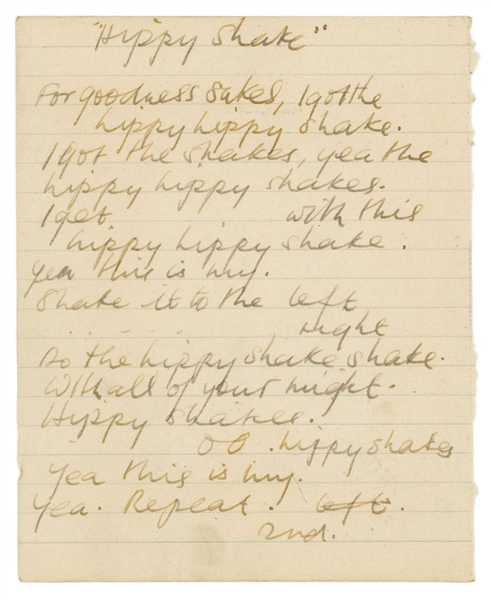 "Hippy Shake"
For goodness sakes, I got the
hippy hippy shake.
I got the shakes, yea the
hippy hippy shakes.
I get with this
hippy hippy shake.
yea this is my.
Shake it to the left
. . - - - - . right
do the hippy shake shake.
With all of your might.
Hippy shakes.
OO . hippy shakes
Yea this is my.
Yea. Repeat. left.
2nd.